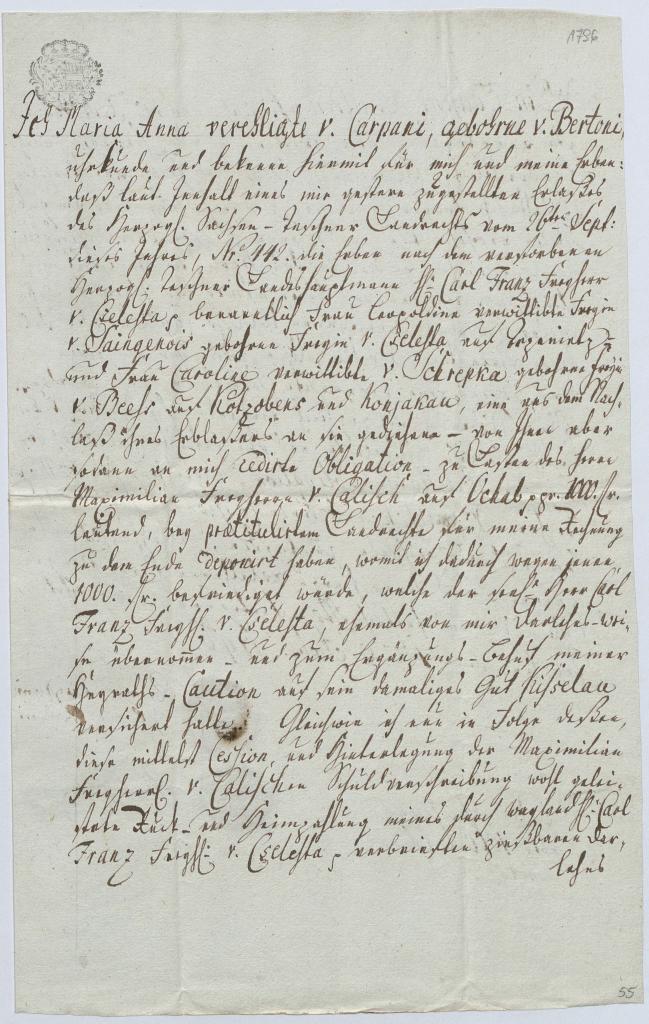 1796
Ich Maria Anna verehligte v. Carpani, gebohrne v. Bertoni,
urkunde und bekenne hiermit für mich und meine Erben:
daß laut Innhalt eines mir gestern zugestellten Erlaßes
des Herzogl. Sachsen-Teschner Landrechts vom 26ten Sept:
dieses Jahres, Nr. 442. die Erben nach dem verstorbenen
Herzogl: Teschner Landeshauptmann H: Carl Franz Freyherr
v. Cselesta, benanntlich Frau Leopoldine verwittibte Freyin
v. Saingenois gebohrne Freyin v. Cselesta auf
und Frau Caroline verwittibte v. Schrepka gebohrne Freyin
v. Beess auf Kotzobens und Konjakau, eine aus dem Nach-
laß ihres Erblaßers an sie gediehene - von Ihnen aber
sodann an mich cedirte Obligation - zu Lasten des Herrn
Maximilian Freyherrn v. Calisch auf Ochab pr. 1000. fr.
lautend, bey prætitulirtem Landrechte für meine Rechnung
zu dem Ende deponirt haben, womit ich dadurch wegen jenen
1000. fr. befriediget würde, welche der Herr Carl
Franz Freyh. v. Cselesta, ehemals von mir Darlehns-wei-
se übernommen - und zum Ergänzungs-Behuf meiner
Heyraths-Caution auf sein damaliges Gut Kisselau
versichert hatte. Gleichwie ich nun in Folge deßen,
diese mittelst Cession, und Hinterlegung der Maximilian
Freyherrl. v. Calischen Schuldverschreibung wohl gelei-
stete Rück- und Heimzahlung meines durch weyland H: Carl
Franz Freyh: v. Cselesta, verbrieften zinßbaren Dar-
lehns
55